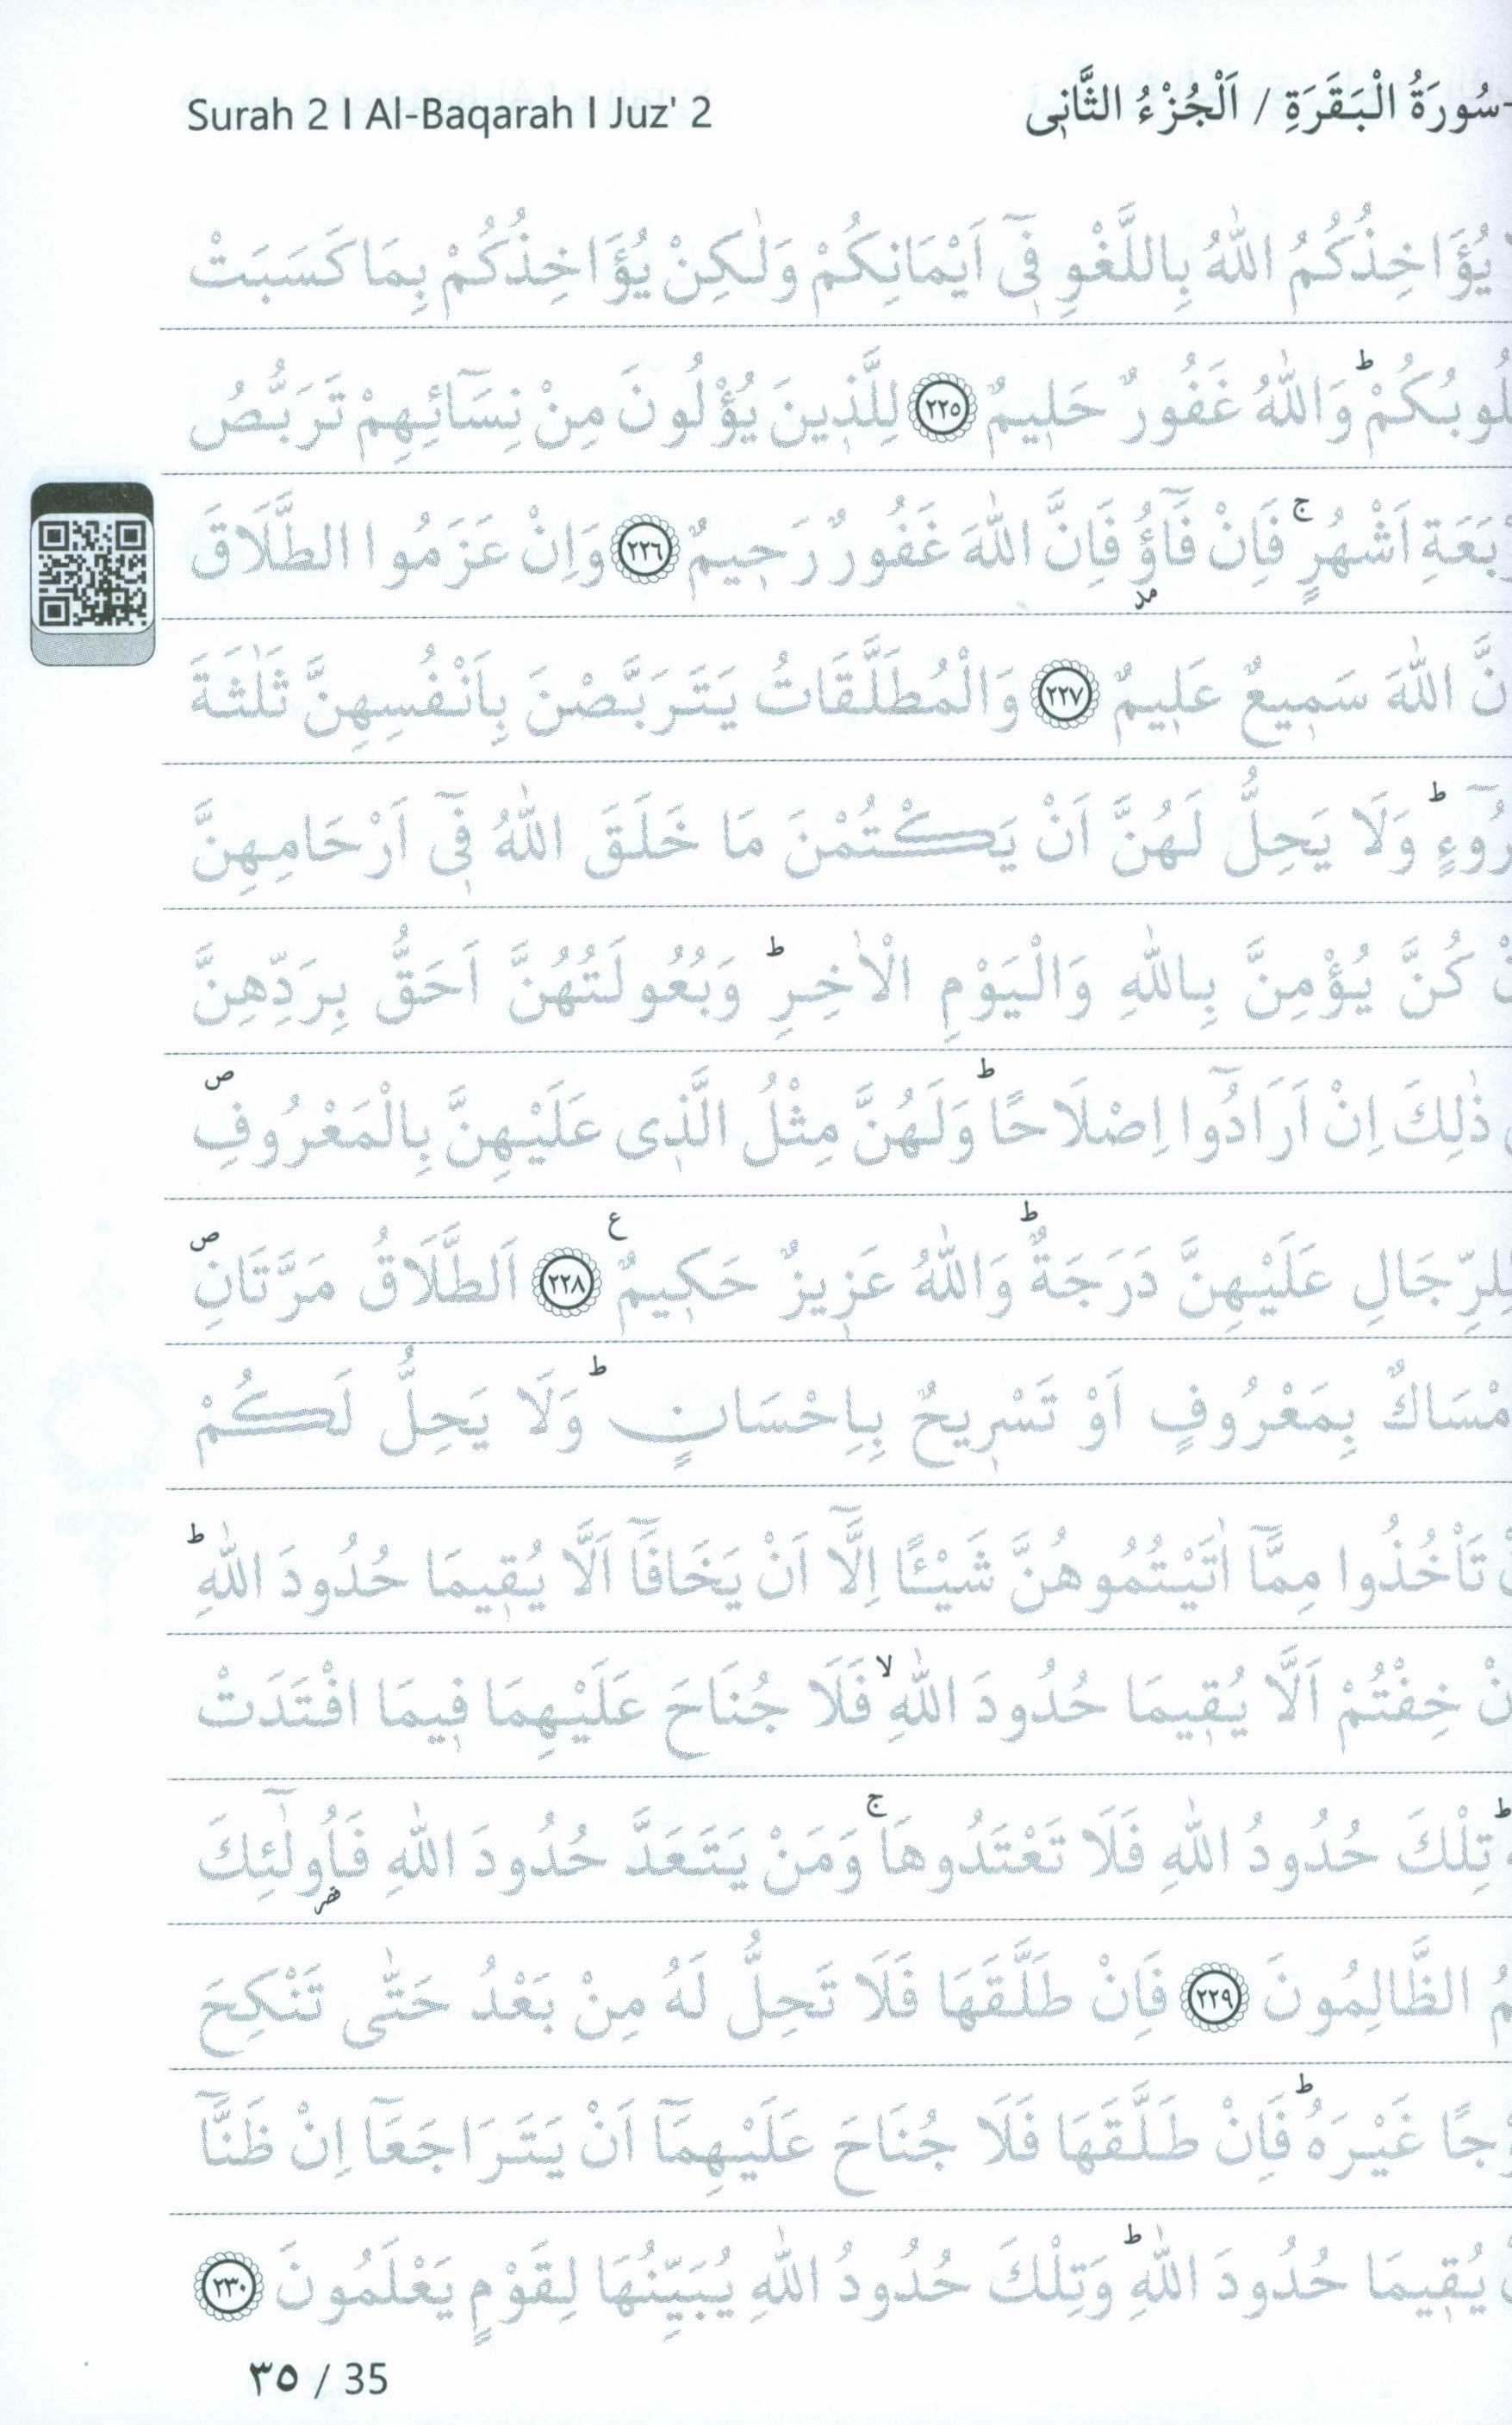 Surah 2 I Al-Baqarah I Juz' 2
سُورَةُ الْبَقَرَةِ / اَلْجُزْءُ الثَّانٖى
يُؤَاخِذُكُمُ اللّٰهُ بِاللَّغْوِ فٖٓى اَيْمَانِكُمْ وَلٰكِنْ يُؤَاخِذُكُمْ بِمَا كَسَبَتْ
لُوبُكُمْؕ وَاللّٰهُ غَفُورٌ حَلٖيمٌ ﴿٢٢٥﴾ لِلَّذٖينَ يُؤْلُونَ مِنْ نِسَٓائِهِمْ تَرَبُّصُ
بَعَةِ اَشْهُرٍۚ فَاِنْ فَٓاؤُ فَاِنَّ اللّٰهَ غَفُورٌ رَحٖيمٌ ﴿٢٢٦﴾ وَاِنْ عَزَمُوا الطَّلَاقَ
مد
نَّ اللّٰهَ سَمٖيعٌ عَلٖيمٌ ﴿٢٢٧﴾ وَالْمُطَلَّقَاتُ يَتَرَبَّصْنَ بِاَنْفُسِهِنَّ ثَلٰثَةَ
رُٓوءٍؕ وَلَا يَحِلُّ لَهُنَّ اَنْ يَكْتُمْنَ مَا خَلَقَ اللّٰهُ فٖٓى اَرْحَامِهِنَّ
كُنَّ يُؤْمِنَّ بِاللّٰهِ وَالْيَوْمِ الْاٰخِرِؕ وَبُعُولَتُهُنَّ اَحَقُّ بِرَدِّهِنَّ
ذٰلِكَ اِنْ اَرَادُٓوا اِصْلَاحًاؕ وَلَهُنَّ مِثْلُ الَّذٖى عَلَيْهِنَّ بِالْمَعْرُوفِ ص
لِلرِّجَالِ عَلَيْهِنَّ دَرَجَةٌؕ وَاللّٰهُ عَزٖيزٌ حَكٖيمٌ ع ﴿٢٢٨﴾ اَلطَّلَاقُ مَرَّتَانِ ص
مْسَاكٌ بِمَعْرُوفٍ اَوْ تَسْرٖيحٌ بِاِحْسَانٍؕ وَلَا يَحِلُّ لَكُمْ
تَأْخُذُوا مِمَّٓا اٰتَيْتُمُوهُنَّ شَيْـًٔا اِلَّٓا اَنْ يَخَافَٓا اَلَّا يُقٖيمَا حُدُودَ اللّٰهِؕ
نْ خِفْتُمْ اَلَّا يُقٖيمَا حُدُودَ اللّٰهِۙ فَلَا جُنَاحَ عَلَيْهِمَا فٖيمَا افْتَدَتْ
ؕ تِلْكَ حُدُودُ اللّٰهِ فَلَا تَعْتَدُوهَاۚ وَمَنْ يَتَعَدَّ حُدُودَ اللّٰهِ فَاُولٰٓئِكَ
مُ الظَّالِمُونَ ﴿٢٢٩﴾ فَاِنْ طَلَّقَهَا فَلَا تَحِلُّ لَهُ مِنْ بَعْدُ حَتّٰى تَنْكِحَ
جًا غَيْرَهُؕ فَاِنْ طَلَّقَهَا فَلَا جُنَاحَ عَلَيْهِمَٓا اَنْ يَتَرَاجَعَٓا اِنْ ظَنَّٓا
يُقٖيمَا حُدُودَ اللّٰهِؕ وَتِلْكَ حُدُودُ اللّٰهِ يُبَيِّنُهَا لِقَوْمٍ يَعْلَمُونَ ﴿٢٣٠﴾
٣٥ / 35